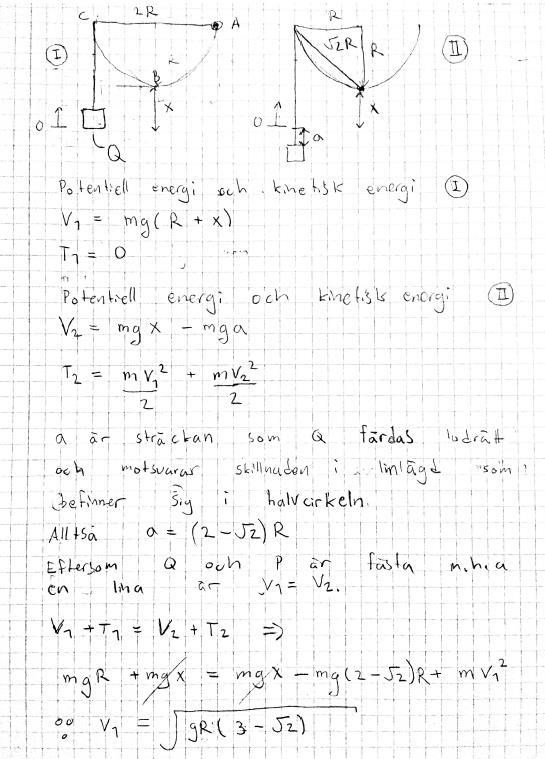 C 2R A R
I √2R R II
B x x
0 0 a
Q
Potentiell energi och kinetisk energi I
V₁ = mg(R + x)
T₁ = 0
Potentiell energi och kinetisk energi II
V₂ = mgx - mga
T₂ = mv₁²/2 + mv₂²/2
a är sträckan som Q färdas lodrätt
och motsvarar skillnaden i linlägd som
befinner sig i halvcirkeln.
Alltså a = (2-√2)R
Eftersom Q och P är fästa m.h.a
en lina är v₁ = v₂.
V₁ + T₁ = V₂ + T₂ ⇒
mgR + mgx = mgx - mg(2-√2)R + mv₁²
∴ v₁ = √gR(3-√2)